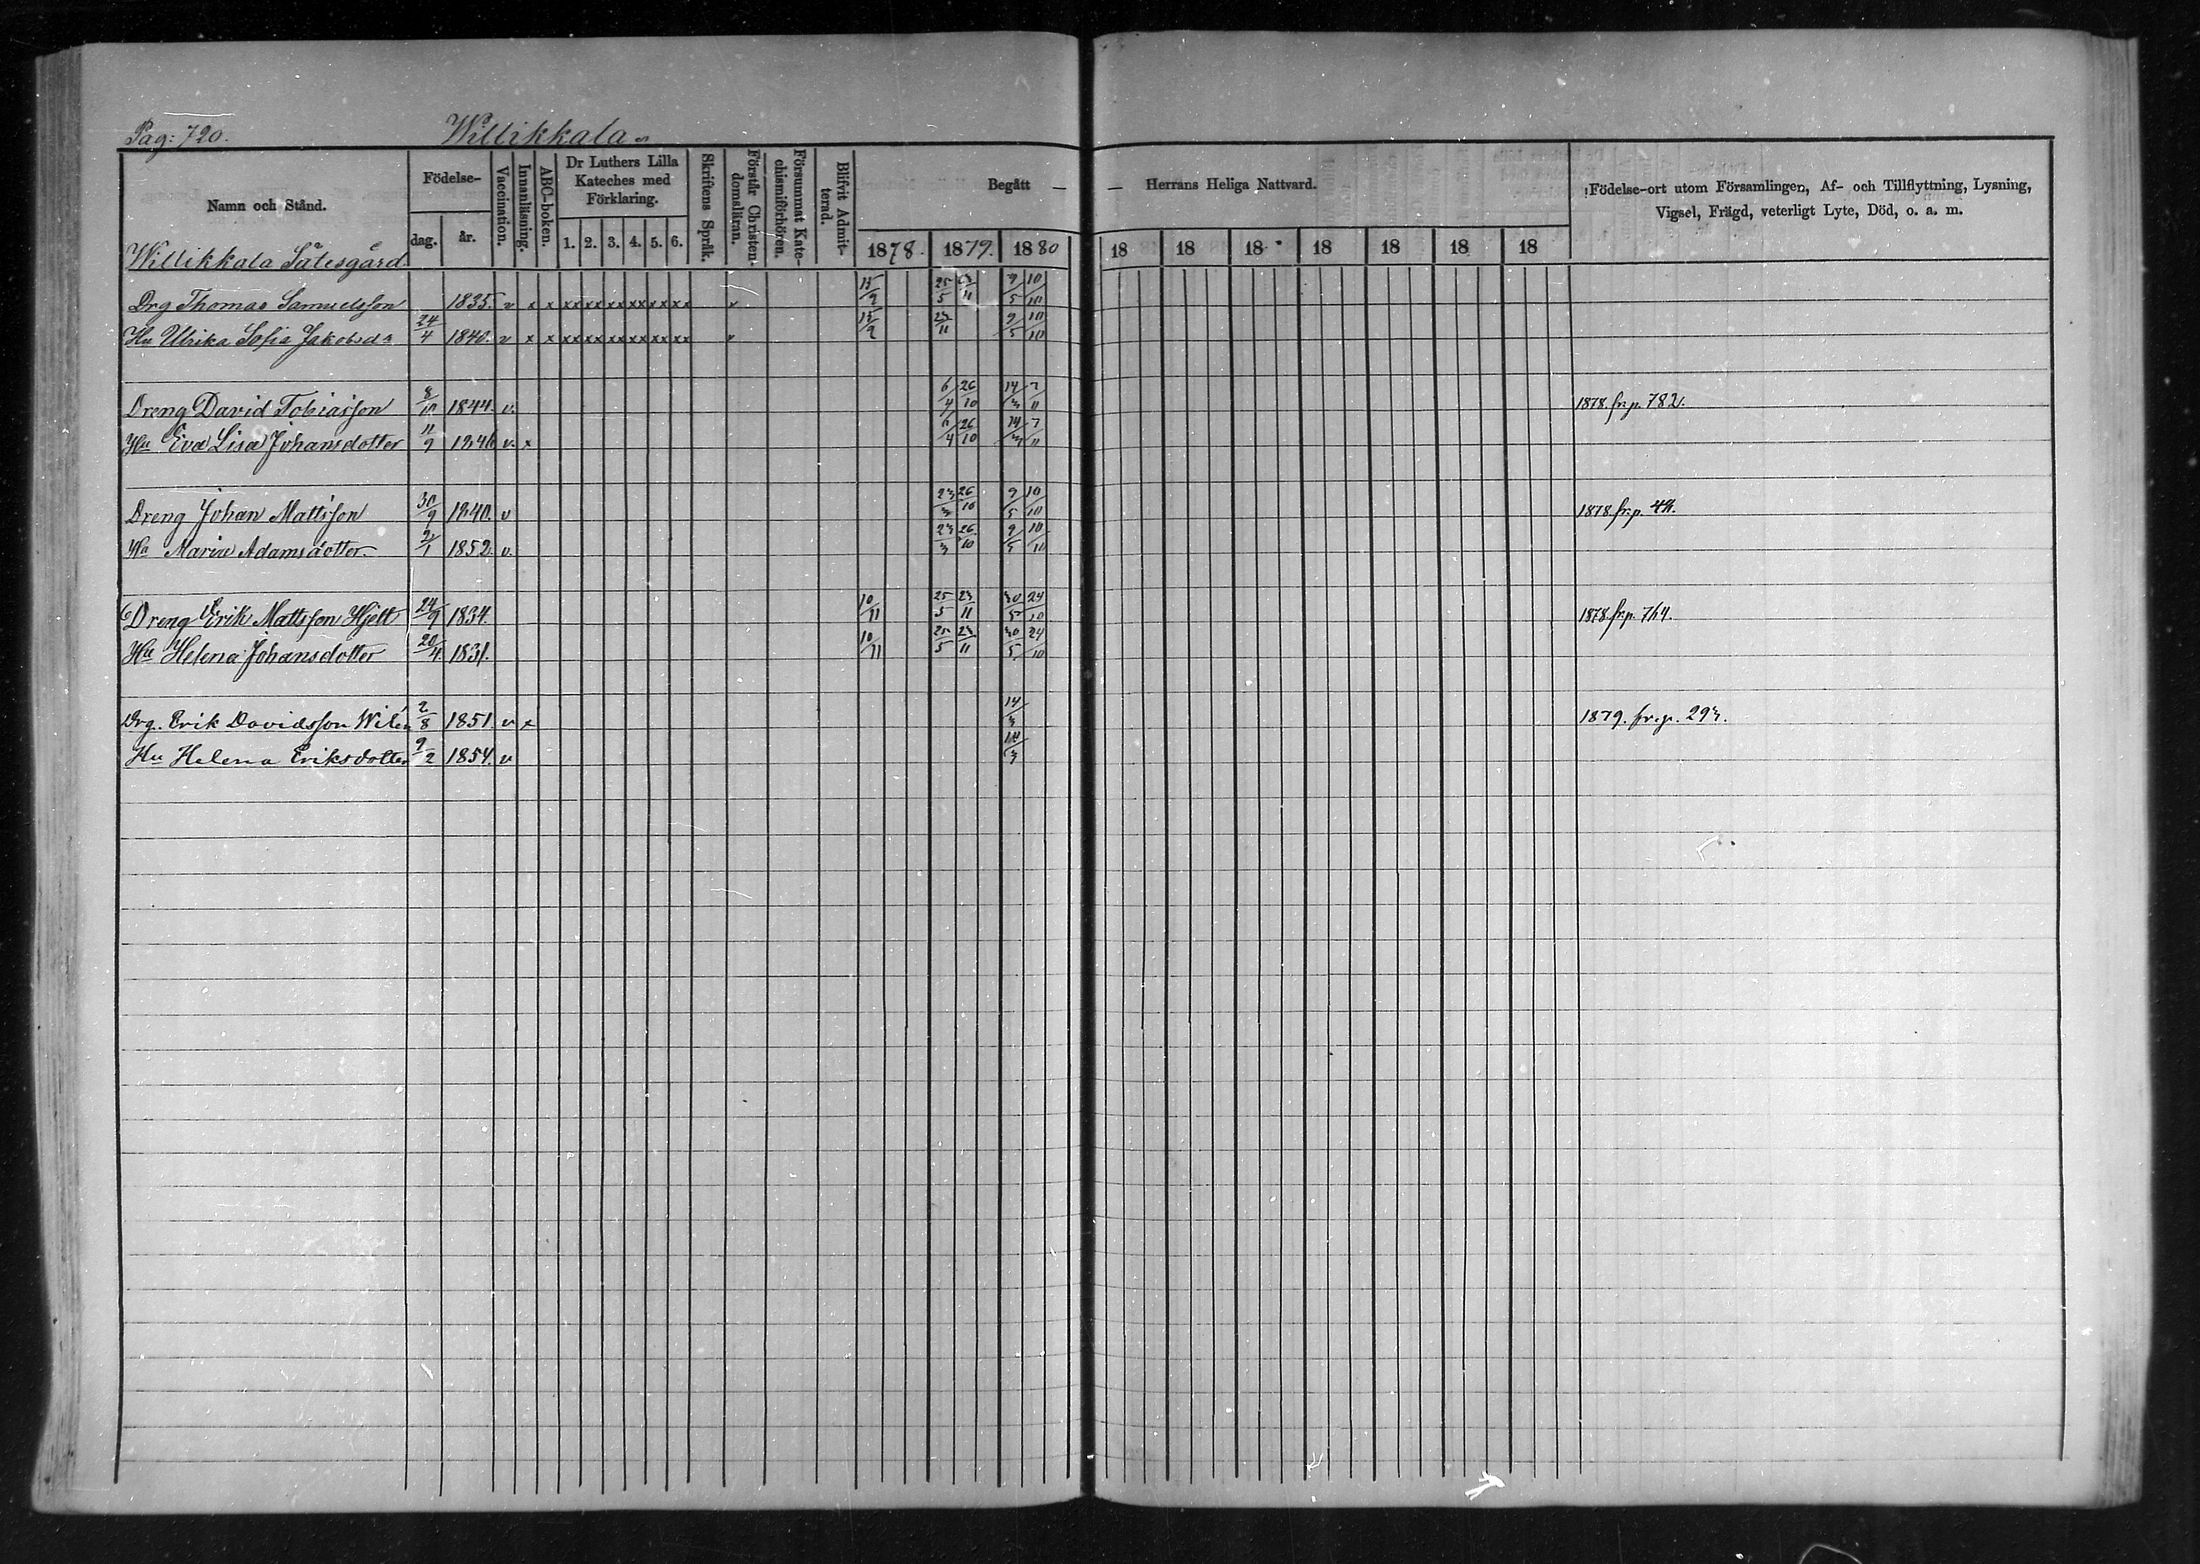 Pag: 720. Willikkala
Namn och Stånd. Födelse- dag. år. Vaccination. Innanläsning. ABC-boken. Dr Luthers Lilla Kateches med Förklaring. 1. 2. 3. 4. 5. 6. Skriftens Språk. Förstår Christendomsläran. Försummat Katechismiförhören. Blifvit Admitterad. Begått — — Herrans Heliga Nattvard. Födelse-ort utom Församlingen, Af- och Tillflyttning, Lysning,
Vigsel, Frägd, veterligt Lyte, Död, o. a. m.
1878. 1879. 1880 18 18 18 18 18 18 18
Willikkala Sätesgård
Drg Thomas Samuelsson 1835. v x x xx xx xx xx xx xx v 15/9 25/5 23/11 9/5 10/10
Hu Ulrika Sofia Jakobsdr 24/4 1840. v x x xx xx xx xx xx xx v 15/9 23/11 9/5 10/10
Dreng David Tobiasson 8/10 1844. v. 6/4 26/10 14/3 7/11 1878. fr.p. 782.
Hu Eva Lisa Johansdotter 11/9 1846 v. x 6/4 26/10 14/3 7/11
Dreng Johan Mattsson 30/9 1840. v 23/3 26/10 9/5 10/10 1878. fr.p.
Hu Maria Adamsdotter 2/1 1852. v. 23/3 26/10 9/5 10/10
Dreng Erik Mattsson Hjelt 24/9 1834. 10/11 25/5 23/11 30/5 24/10 1878. fr.p. 764.
Hu Helena Johansdotter 20/4 1831. 10/11 25/5 23/11 30/5 24/10
Drg. Erik Davidsson Wilén 2/8 1851. v x 14/3 1879. fr.p. 293.
Hu Helena Eriksdotter 9/2 1854. v 14/3